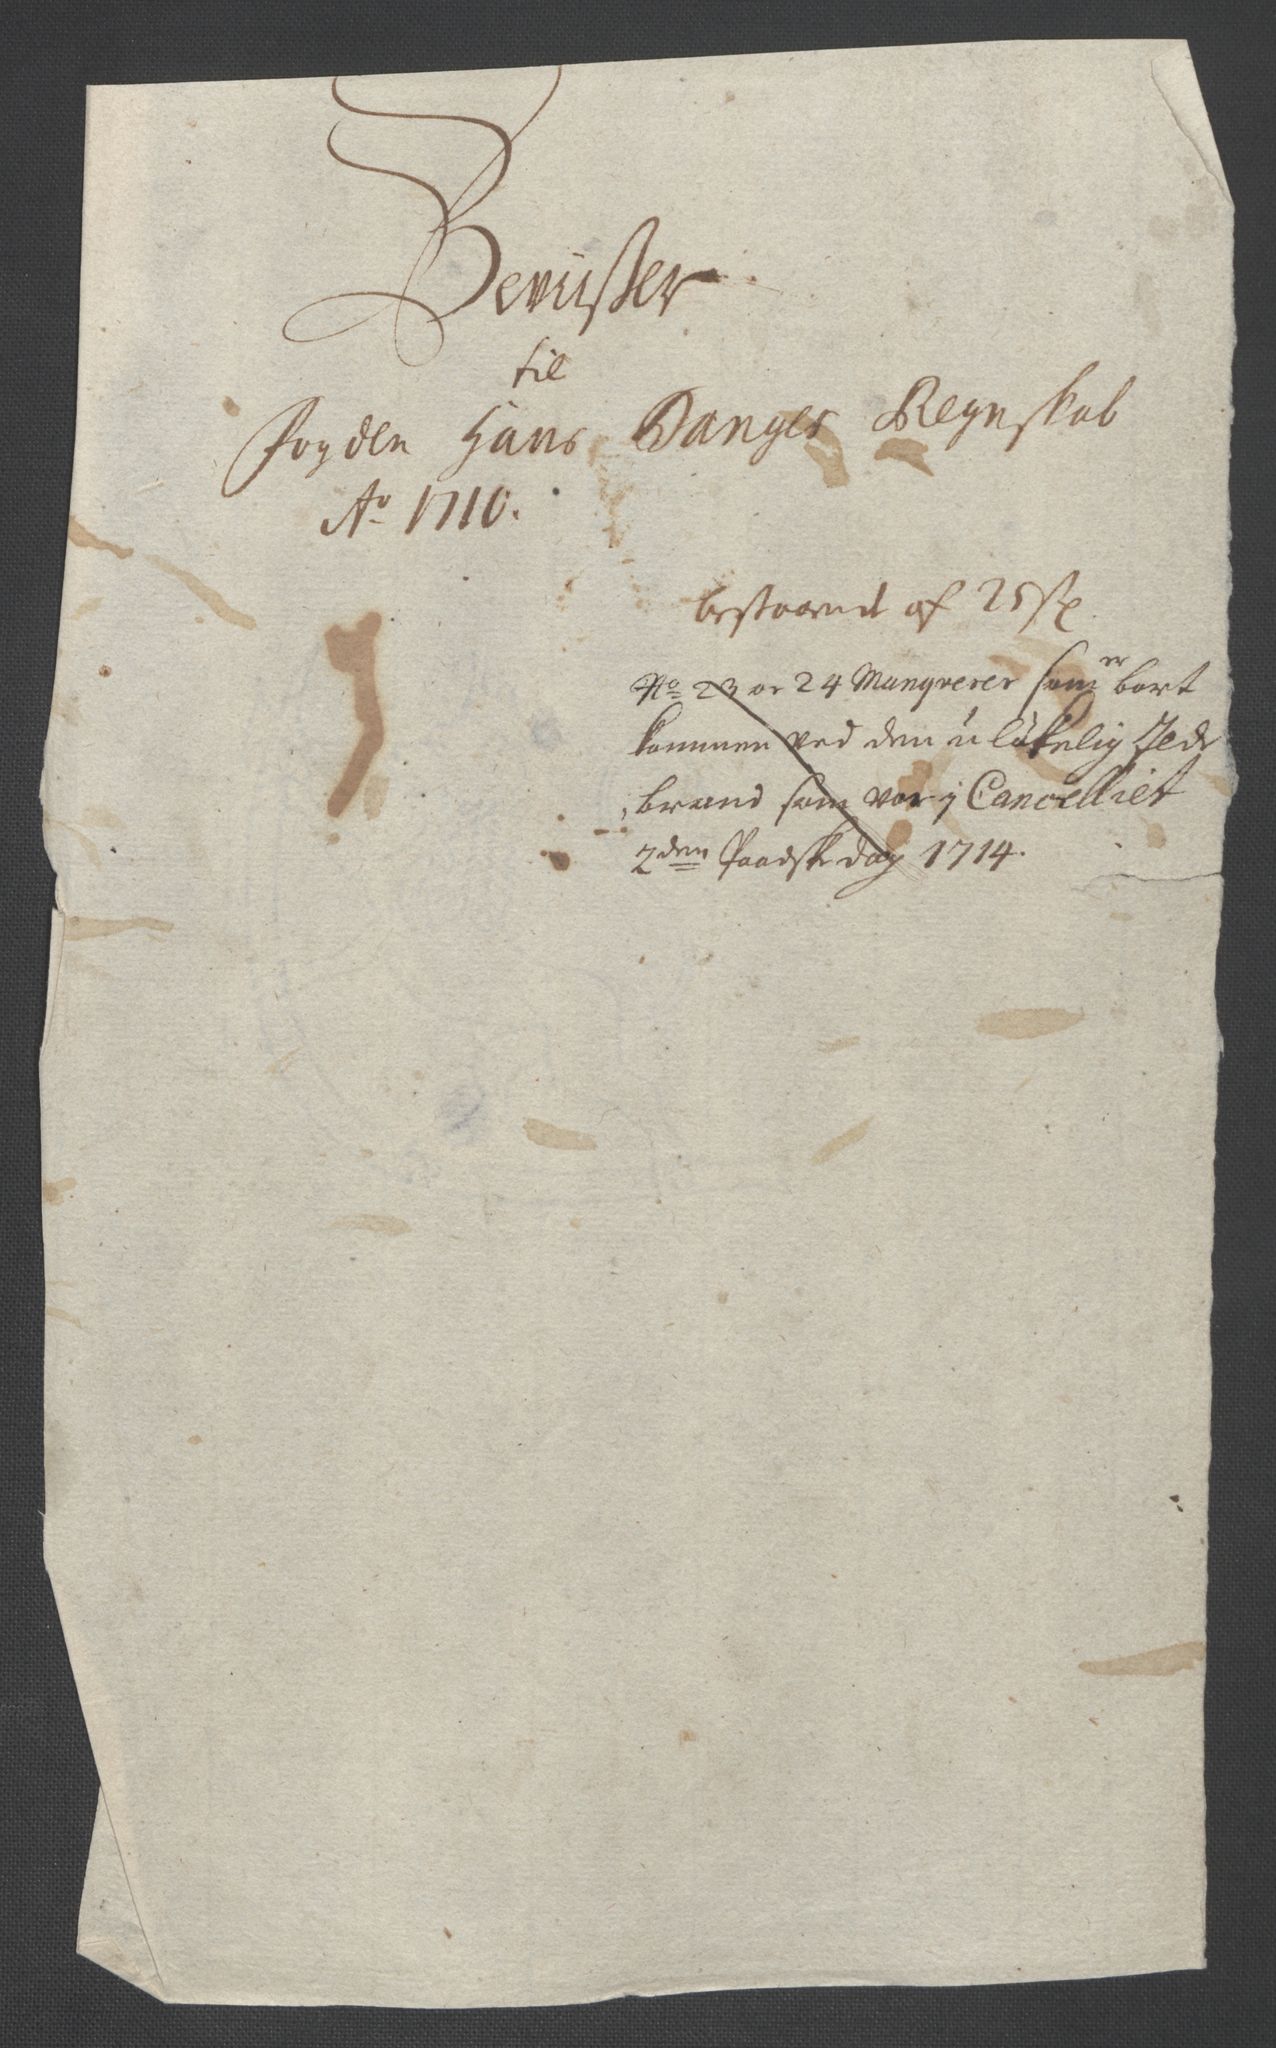 Beviister
til
Fogden Hans Banges Regnskab
Ao 1710.
bestaaende af 25 st
No 23 oc 24 Mangverer som er bort
kommen ved den ulÿkelig Ilde
brand som var j Cancelliet
2den Paadske dag 1714.